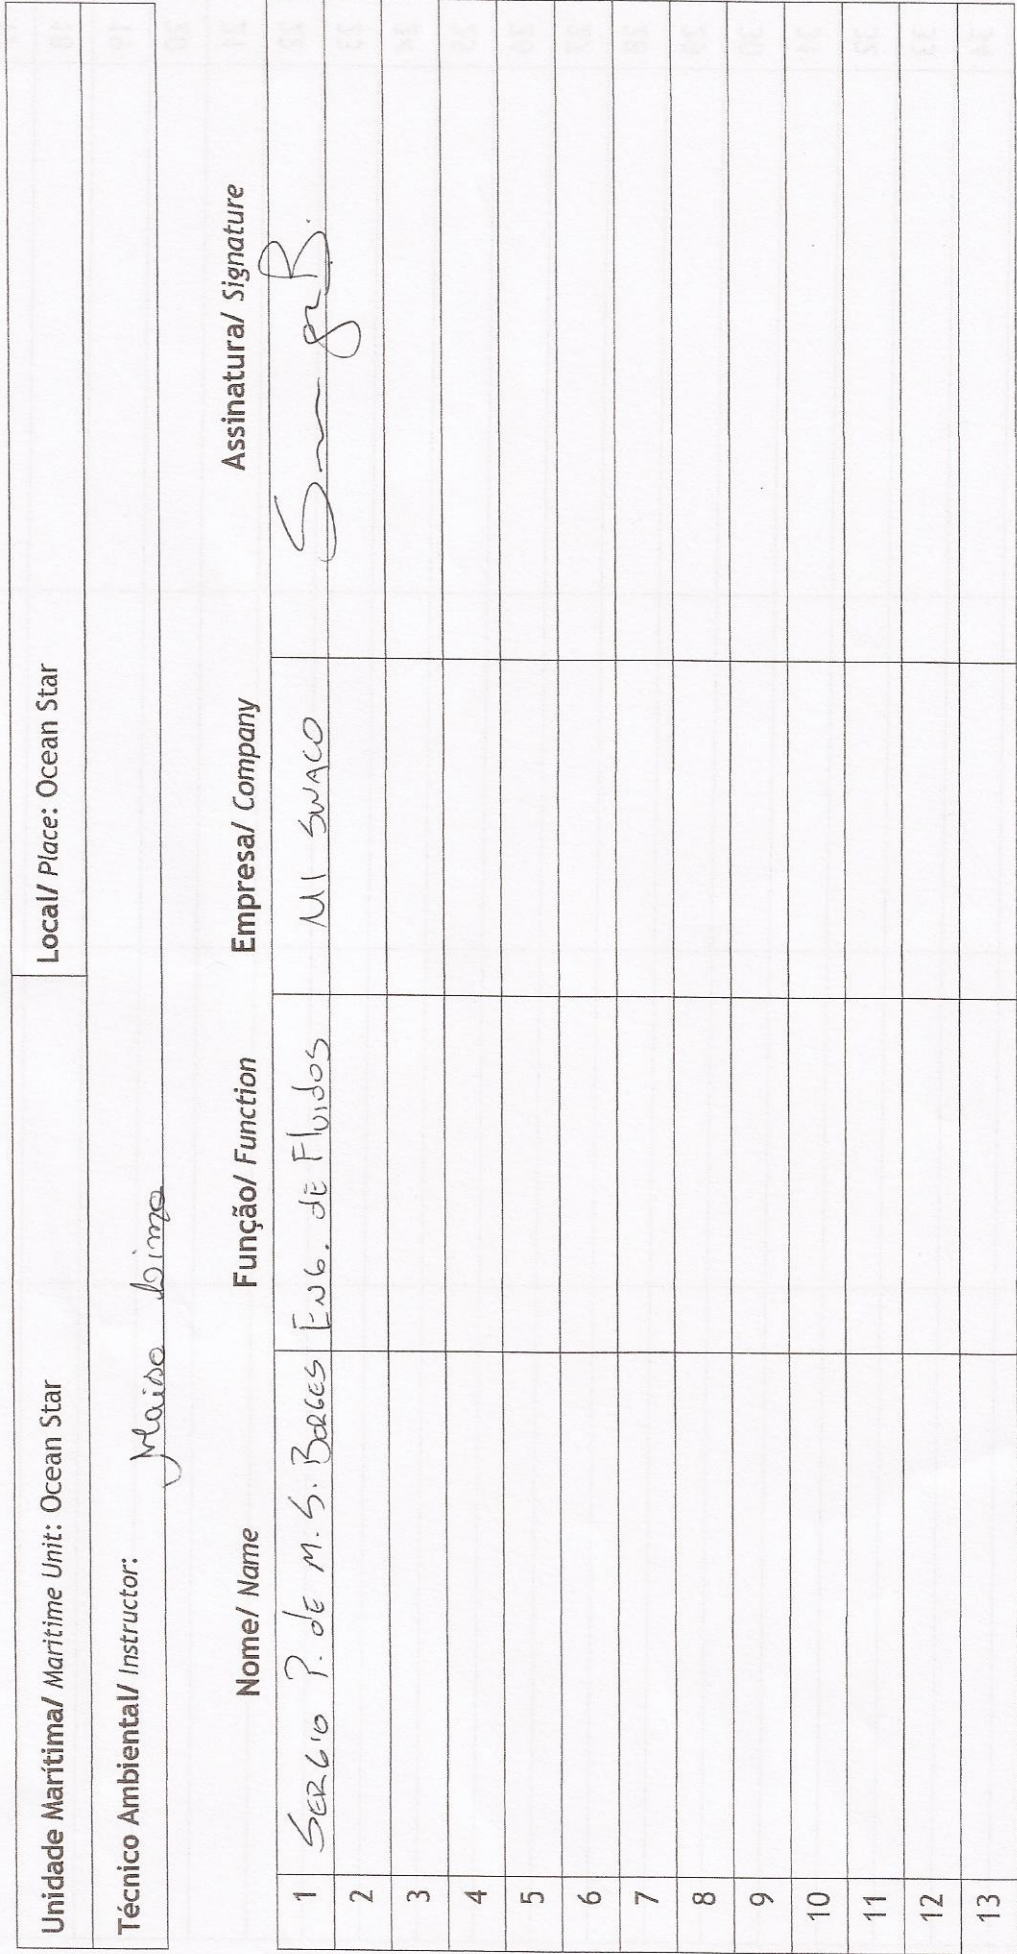 Unidade Marítima/ Maritime Unit: Ocean Star Local/ Place: Ocean Star
Técnico Ambiental/ Instructor: Maisa Lima
Nome/ Name Função/ Function Empresa/ Company Assinatura/ Signature
1 SERGIO P. dE M. S. BORGES ENG. dE Fluidos MI SWACO
2
3
4
5
6
7
8
9
10
11
12
13